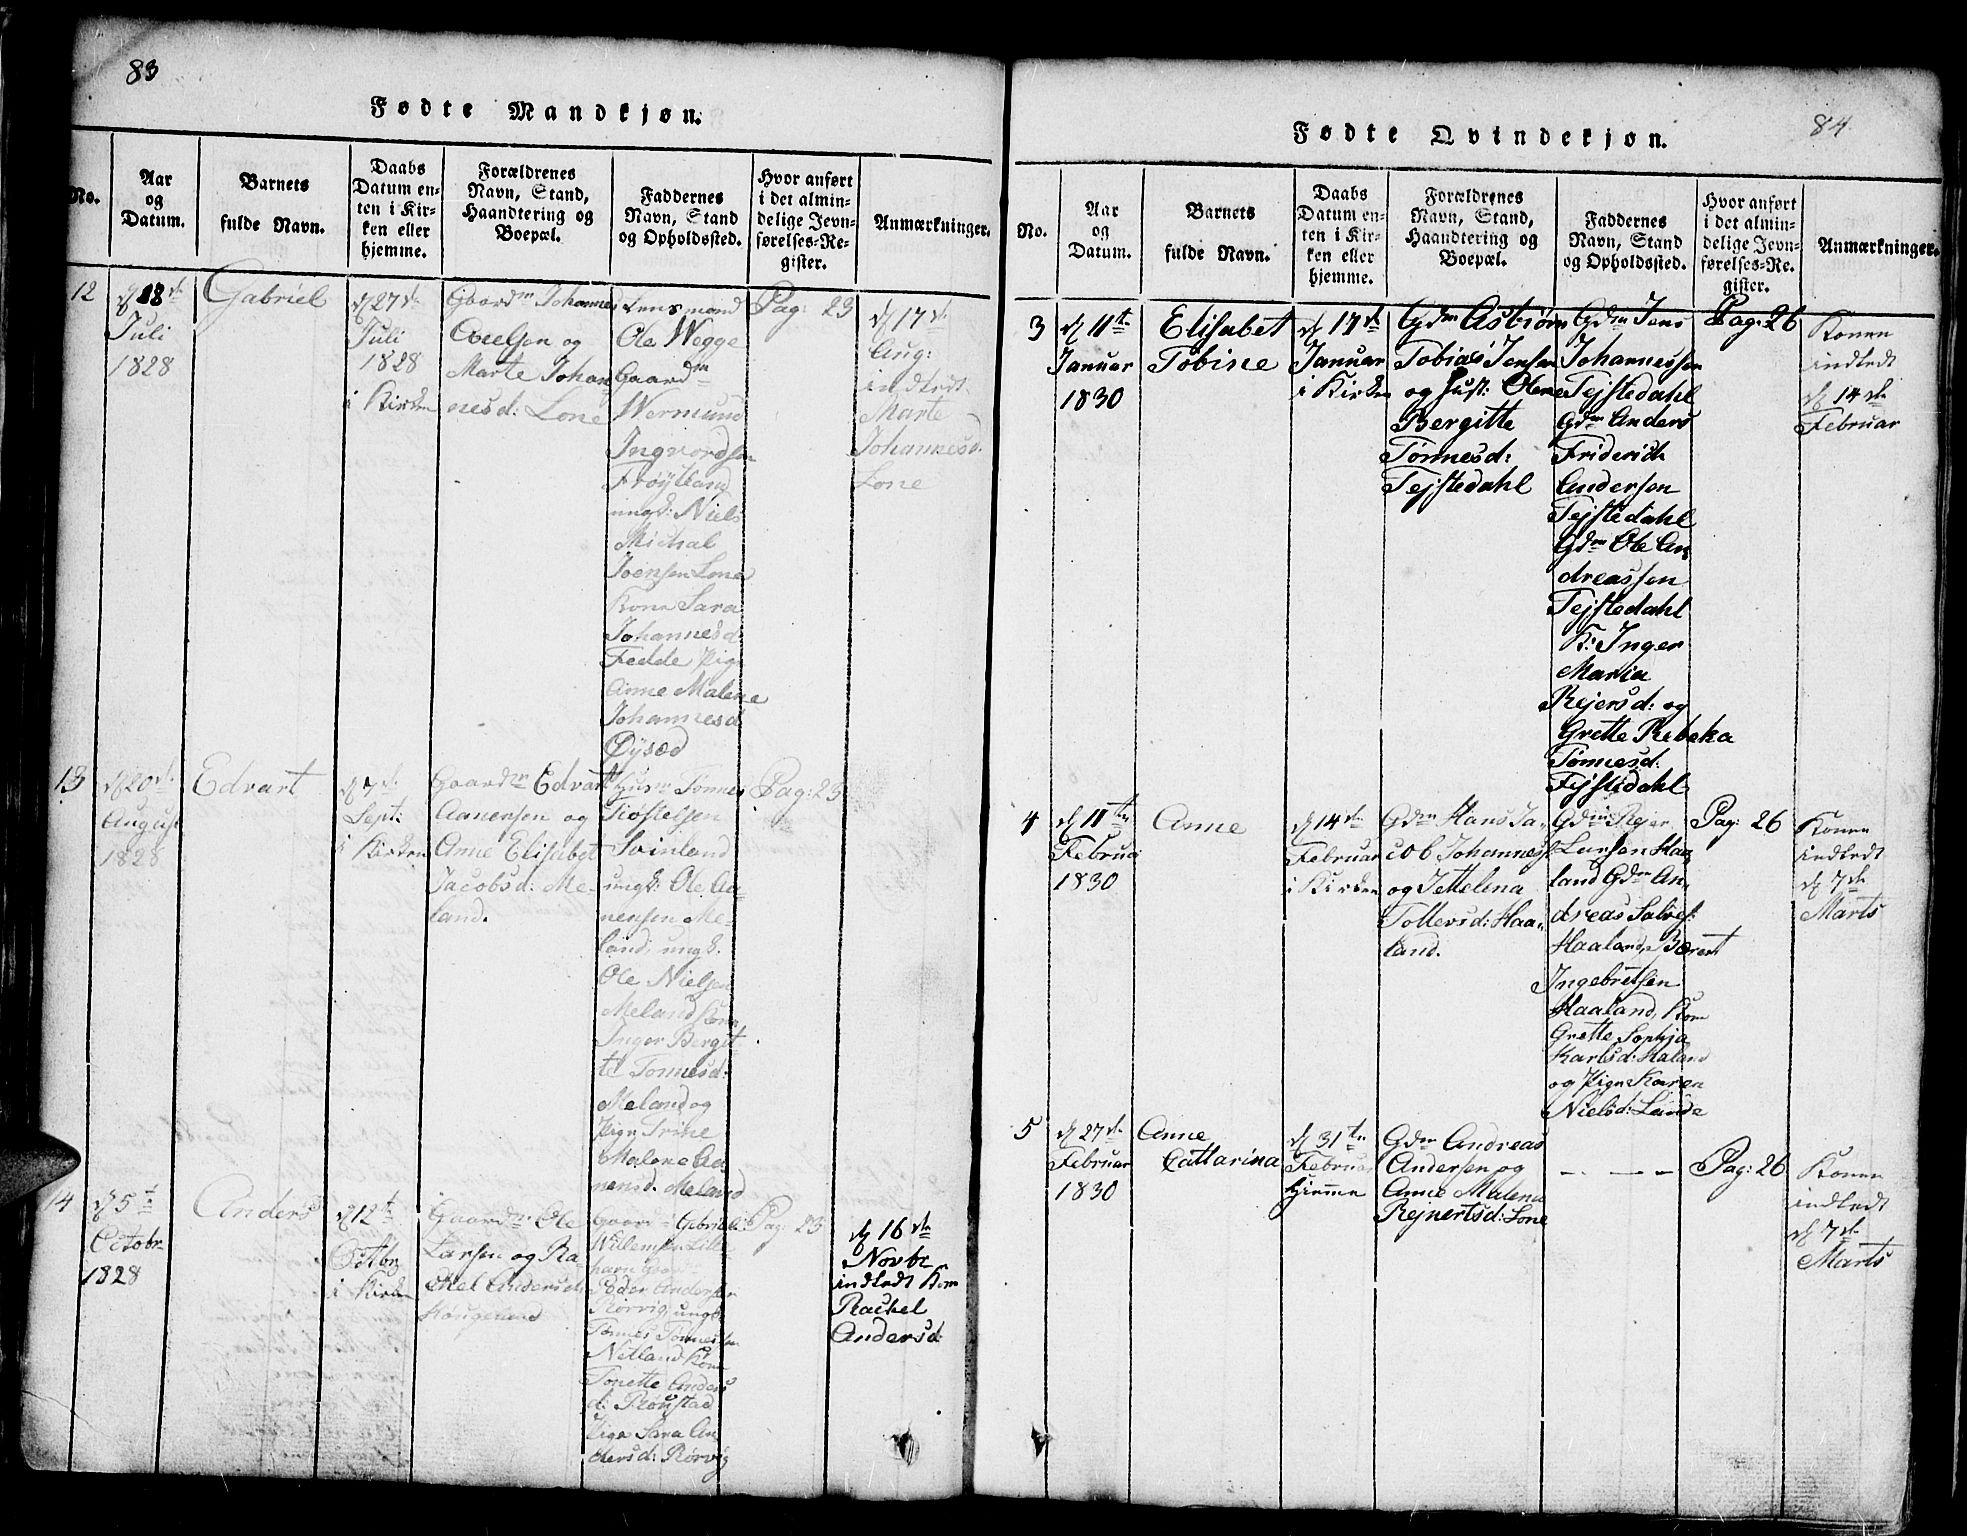 83
Fødte Mandkjøn.
No.
Aar
og
Datum.
Barnets
fulde Navn.
Daabs
Datum en-
ten i Kir-
ken eller
hjemme.
Forældrenes
Navn, Stand,
Haandtering og
Boepæl.
Faddernes
Navn, Stand
og Opholdssted.
Hvor anført
i det almin-
delige Jevn-
førelses-Re-
gister.
Anmærkninger.
12
d 18de
Juli
1828
Gabriel
d 27de
Juli
1828
i Kirken
Gaardm Johannes
Axelsen og
Marte Johan
nesd: Lone
Lensmand
Ole Wegge
Gaardm
Wermund
Ingvordsen
Frøytland
ungk: Niels
Michal
Joensen Lone
Kone Sara
Johannesd:
Fedde Pig
Anne Malene
Johannesd
Øysæd
Pag: 23
d 17de
Aug:
indledt
Marte
Johannesd.
Lone
13
d 20de
August
1828
Edvart
d 7de
Sept:
i Kirken
Gaardm Edvart
Aanensen og
Anne Elisabet
Jacobsd: Me-
land.
Husm Tønnes
Kiøstelsen
Svinland
ungk: Ole Aa-
nensen Me-
land, ungk.
Ole Nielsen
Meland Kone
Inger Bergit
te Tønnesd:
Meland og
Pige Trine
Malene Aa
nensd. Meland
Pag: 23
14
d 5te
Octobr
1828
Anders
d 12te
Octbr
i Kirken
Gaardm Ole
Larsen og Ra-
chel Andersd:
Haugeland
Gaardm Gabriel
Willemsen Lille
Peder Andersen
Rørvig, ungk
Tønnes Tønnessen
Netland Kone
Tonette Anders
d: Røijstad
Pige Sara An
dersd: Rørvig
Pag: 23
d 16de
Novbr
indledt Kone
Rachel
Andersd:
84
Fødte Qvindekjøn.
No.
Aar
og
Datum.
Barnets
fulde Navn.
Daabs
Datum en-
ten i Kir-
ken eller
hjemme.
Forældrenes
Navn, Stand,
Haandtering og
Boepæl.
Faddernes
Navn, Stand
og Opholdssted.
Hvor anført
i det almin-
delige Jevn-
førelses-Re-
gister.
Anmærkninger.
3
d 11te
Januar
1830
Elisabet
Tobine
d 17de
Januar
i Kirken
Gdm Asbiørn
Tobias Jensen
og Hust: Olene
Bergitte
Tønnesd:
Tejstedahl
Gdm Jens
Johannessen
Tejstedahl
Gdm Anders
Friderich
Andersen
Tejstedahl
Gdm Ole An
dreassen
Tejstedahl
K: Inger
Maria
Rejersd: og
Grette Rebeka
Tønnesd:
Tejstedahl
Pag: 26
Konen
indledt
d 14de
Februar
4
d 11te
Februar
1830
Anne
d 14de
Februar
i Kirken
Gdm Hans Ja-
cob Johanness:
og Jettelena
Tollevsd: Haa-
land.
Gdm Rejer
Larsen Haa
land Gdm An-
dreas Salves:
Haaland, Berent
Ingebretsen
Haaland, Kone
Grette Sophja
Karlsd: Haland
og Pige Karen
Nielsd: Lande
Pag: 26
Konen
indledt
d 7de
Marts
5
d 27de
Februar
1830
Anne
Cattarina
d 31te
Februar
hjemme
Gdm Andreas
Andersen og
Anne Malena
Rejnertsd: Lone
- - - -
Pag: 26
Konen
indledt
d 7de
Marts